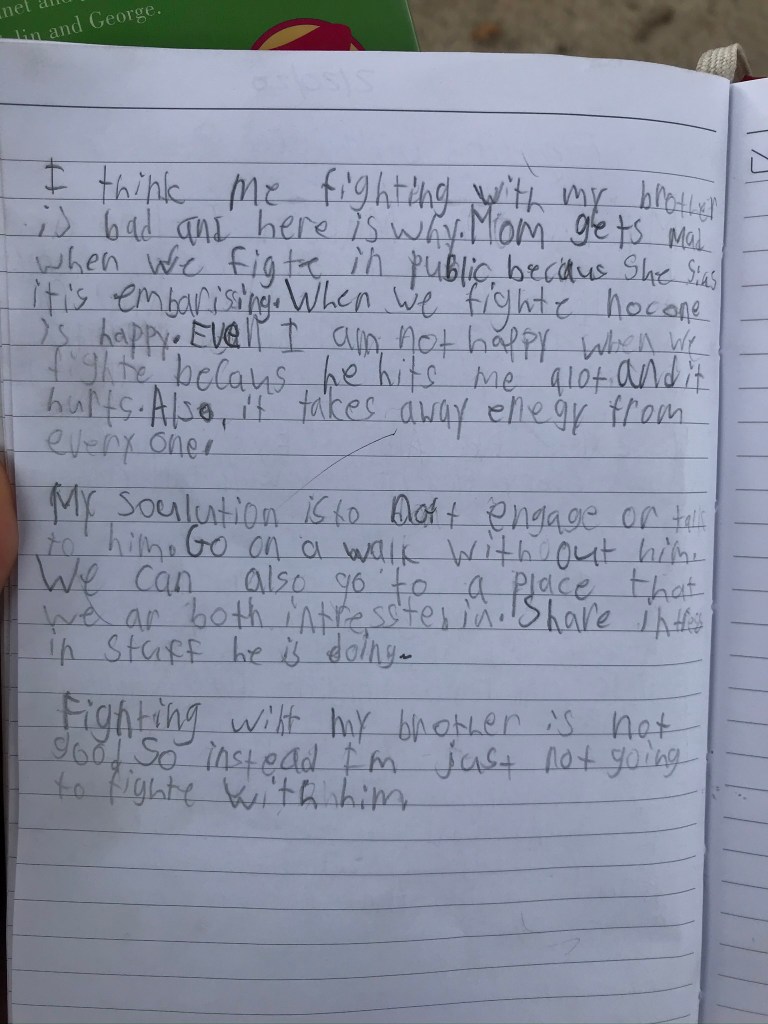 lin and George.
I think me fighting with my brother
is bad and here is why. Mom gets mad
when we figte in public becaus she sias
itis embarising. When we fighte nocone
is happy. Even I am not happy when we
fighte becaus he hits me alot. and it
hurts. Also, it takes away enegy from
every one.
My soulution is to not engage or talk
to him. Go on a walk with out him.
We can also go to a place that
we ar both intresster in. Share
in staff he is doing.
Fighting wiht my brother is not
good So instead I'm just not going
to fighte with him.